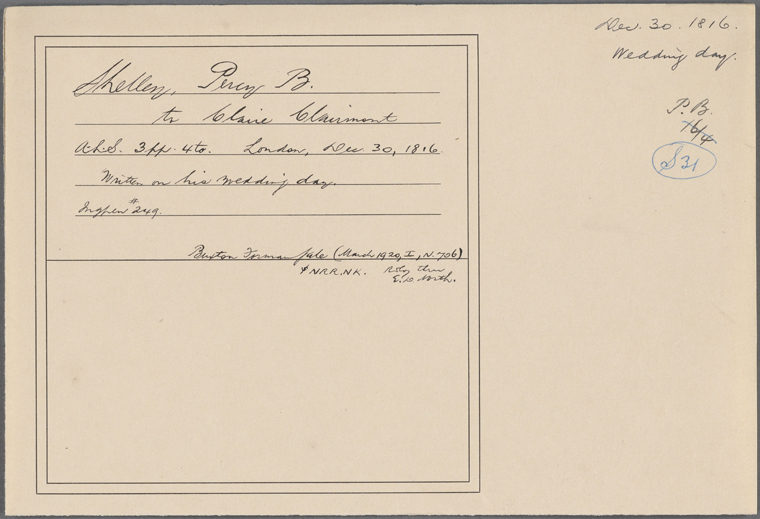 Dec. 30. 1816.
Wedding day.
P. B.
S 31
Shelley, Percy B.
to Claire Clairmont
A.L.S. 3 pp. 4to. London, Dec 30, 1816
Written on his wedding day.
Ingpen #249.
Buxton Forman Sale (March 1920, I, N. 706)
N.R.R.NK.
E. D. North.